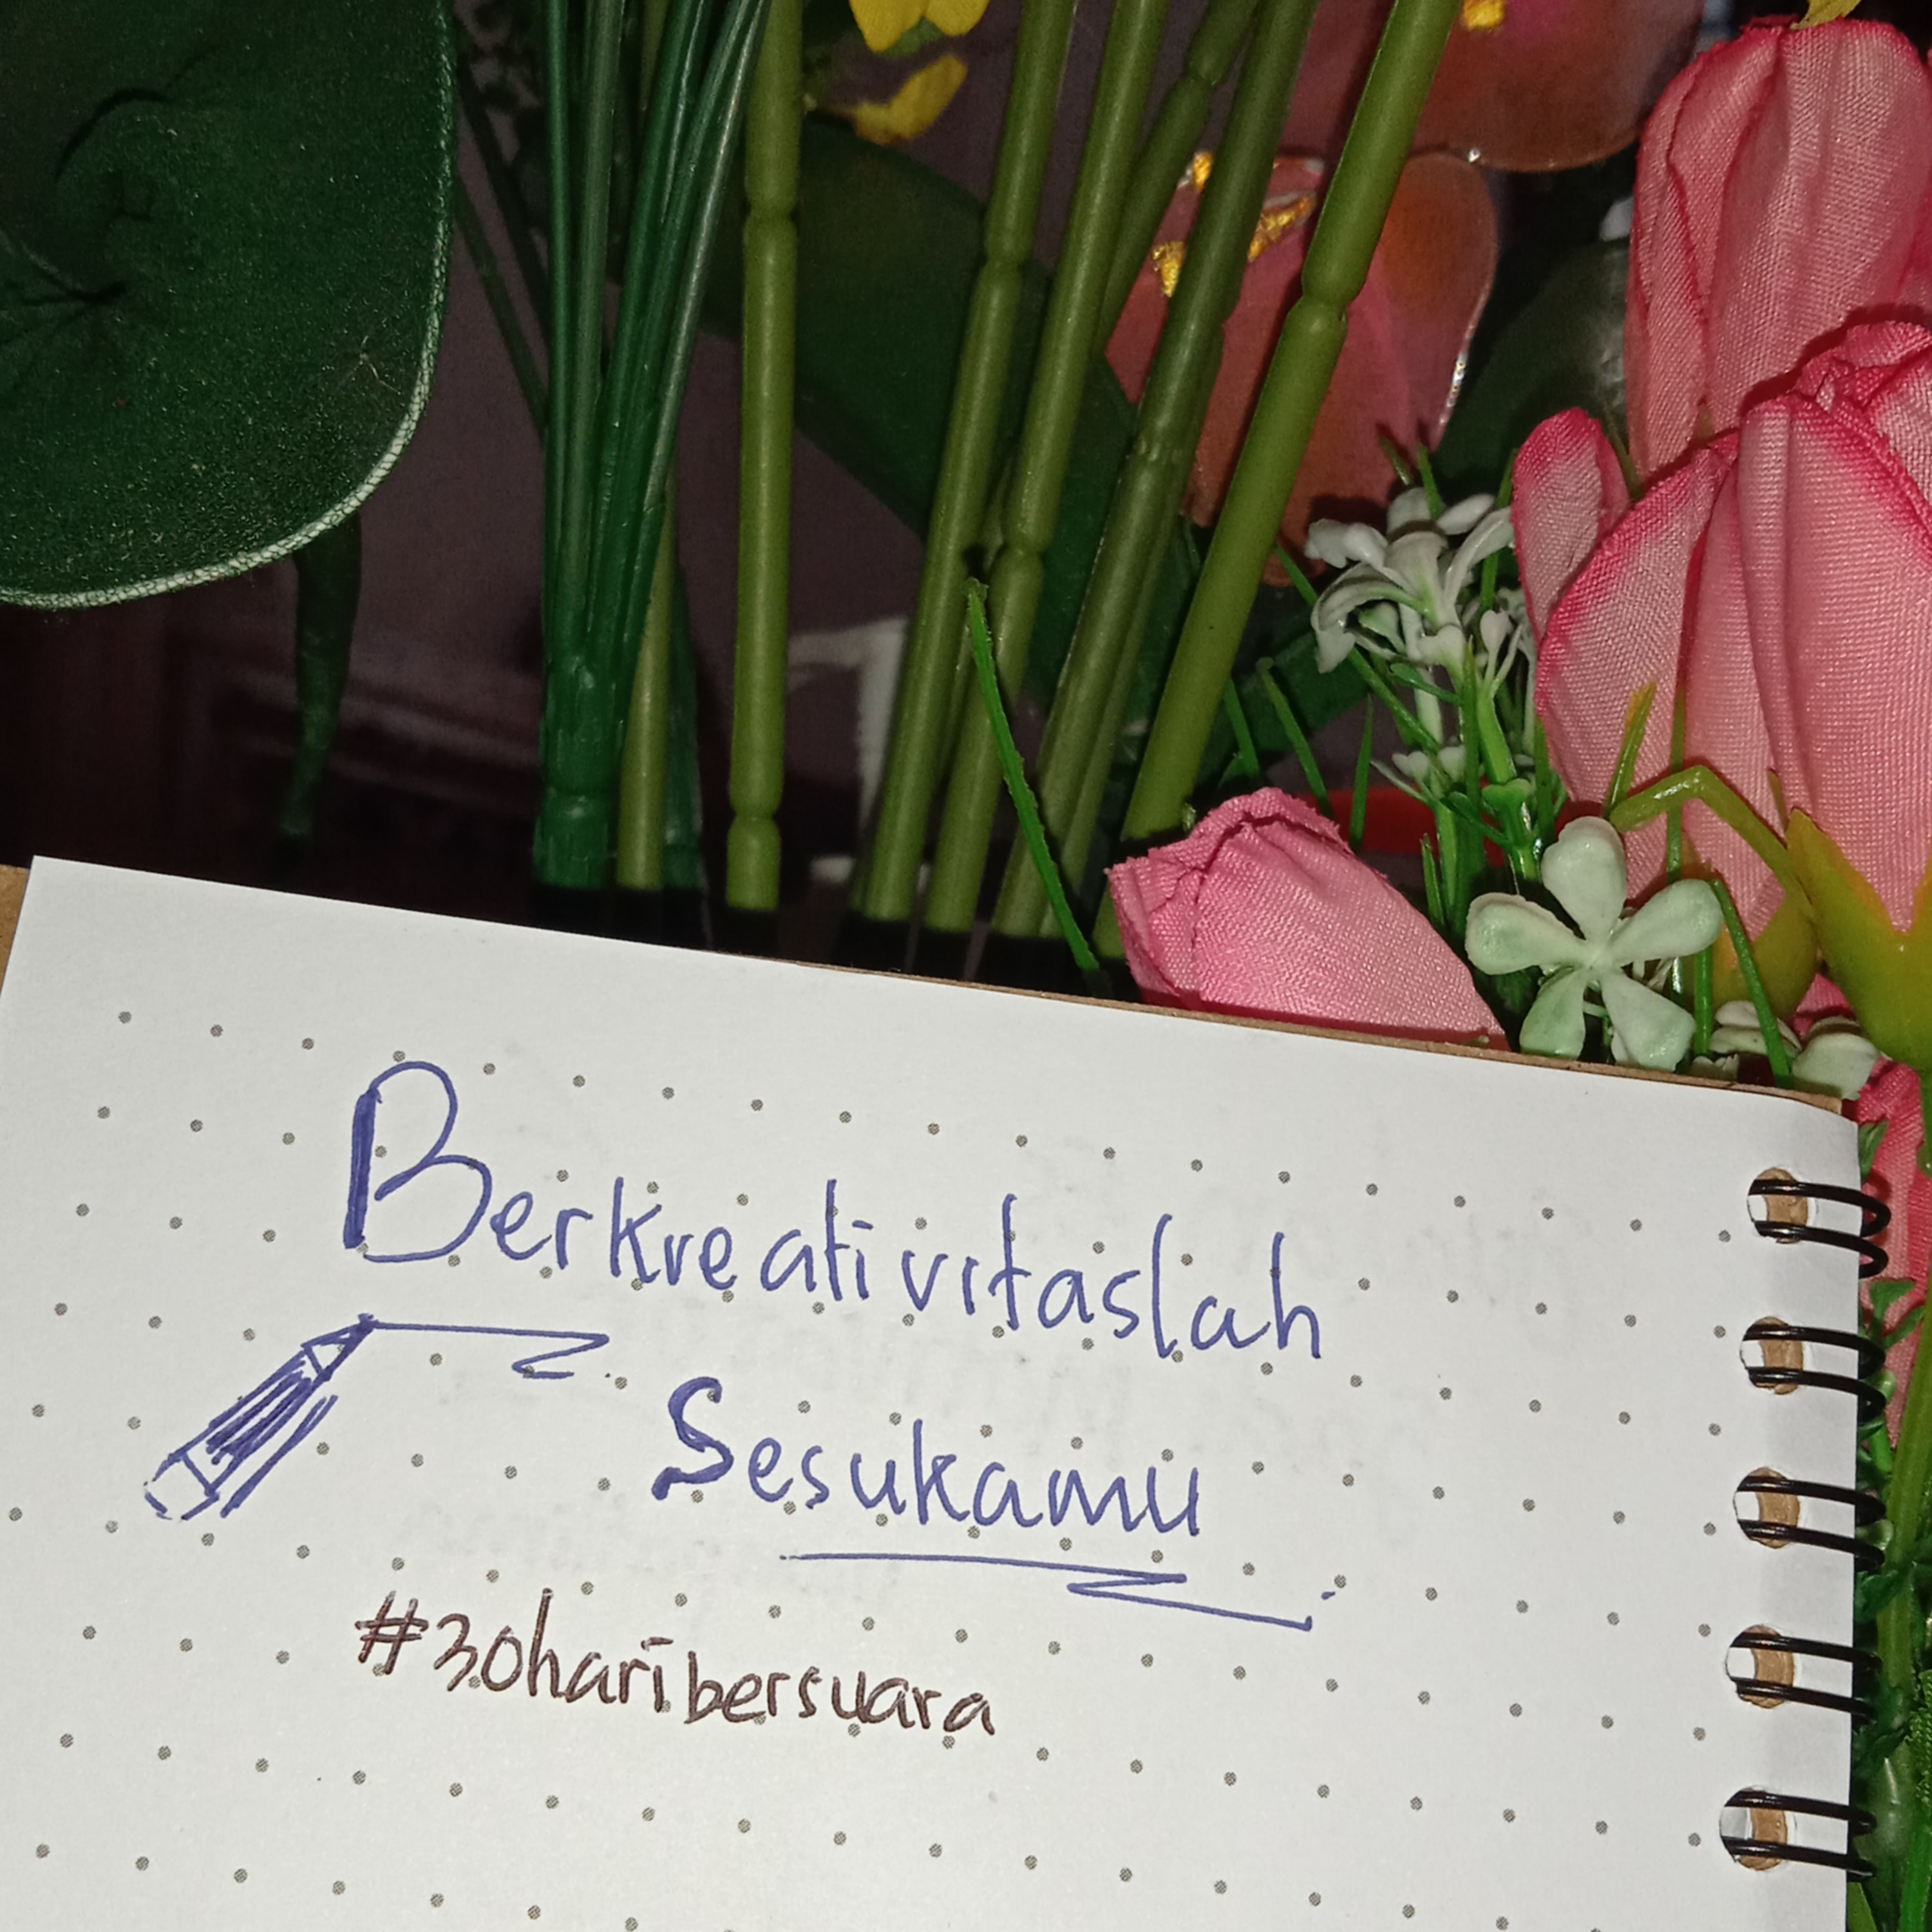 Berkreativitaslah
Sesukamu
#30haribersuara